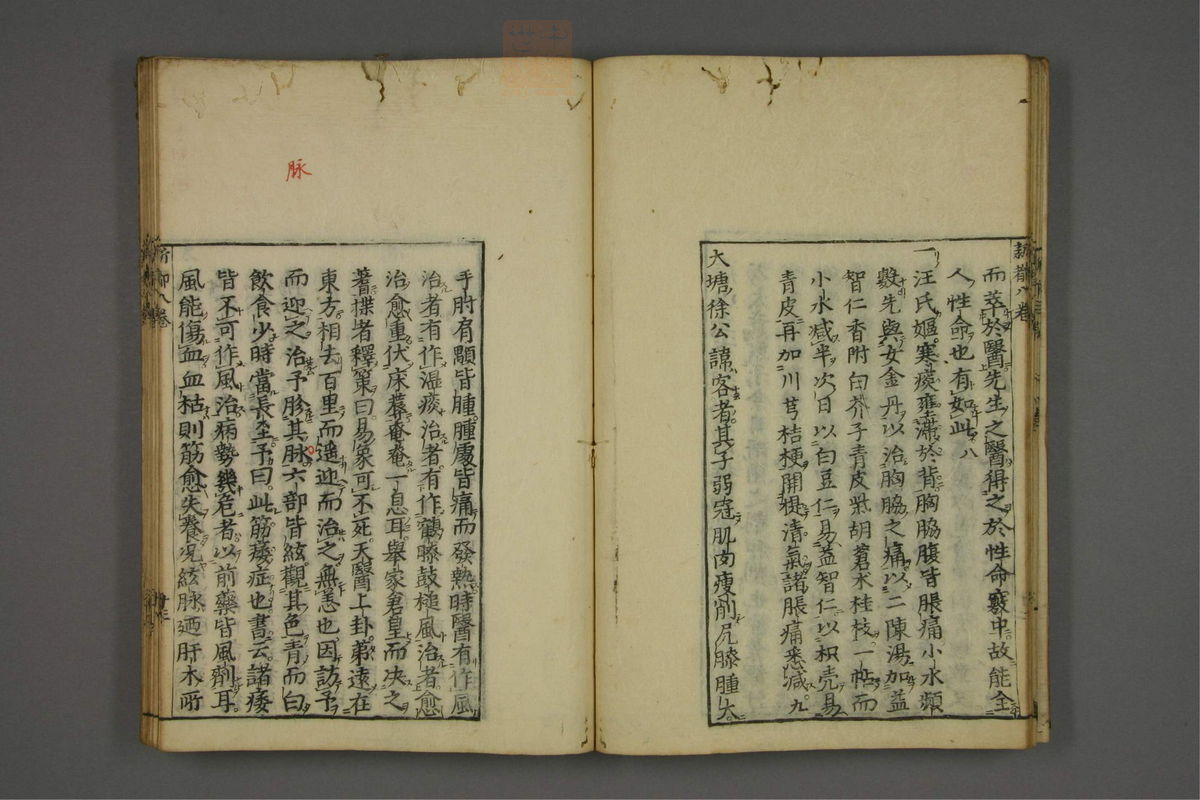 新都八卷
而萃於醫先生之醫得之於性命竅中故能全
人性命也有如此八
一汪氏嫗寒痰壅滯於背胸脇腹皆脹痛小水頻
數先與女金丹以治胸脇之痛以二陳湯加益
智仁香附白芥子青皮柴胡蒼木桂枝一帖而
小水减半次日以白豆仁易益智仁以枳壳易
青皮再加川芎桔梗開提清氣諸脹痛悉减九
大塘徐公諱客者其子弱冠肌肉瘦削尻膝腫大
手肘肩顒皆腫腫處皆痛而發熱時醫有作風
治者有作湿痰治者有作鶴膝鼓槌風治者愈
治愈重伏床蓐奄奄一息耳舉家倉皇而决之
蓍揲者釋策曰易象可不死天醫上卦第遠在
東方相去百里而遥迎而治之無恙也因訪予
而迎之治予胗其脉六部皆絃觀其色青而白
飲食少時當長至予曰此筋痿症也書云諸痿
皆不可作風治病勢幾危者以前藥皆風劑耳
風能傷血血枯則筋愈失養况絃脉廼肝木所
脉